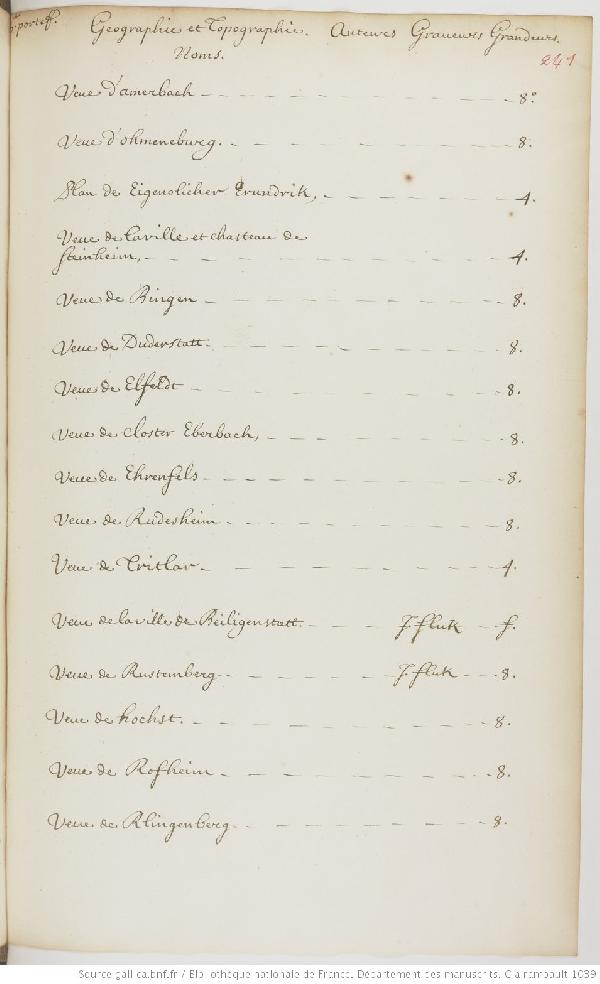 portef. Geographie et Topographie. Auteurs Graueurs Grandeurs.
Noms.
241
Veue d'amerbach 8°
Veue d'ohmeneburg. 8.
Plan de Eigenolicher Grundrik, 4.
Veue de la ville et chasteau de
steinheim, 4.
Veue de Bingen 8.
Veue de Duderstatt 8.
Veue de Elfeldt 8.
Veue de closter Eberbach, 8.
Veue de Ehrenfels 8.
Veue de Rudesheim 8.
Veue de Tritlar 4.
Veue de la ville de Heiligenstatt J. fluk f.
Veue de Rustemberg J. fluk 8.
Veue de hochst. 8.
Veue de Hofheim 8.
Veue de Klingenberg 8.
Source gallica.bnf.fr / Bibliothèque nationale de France. Département des manuscrits. Clairambault 1039